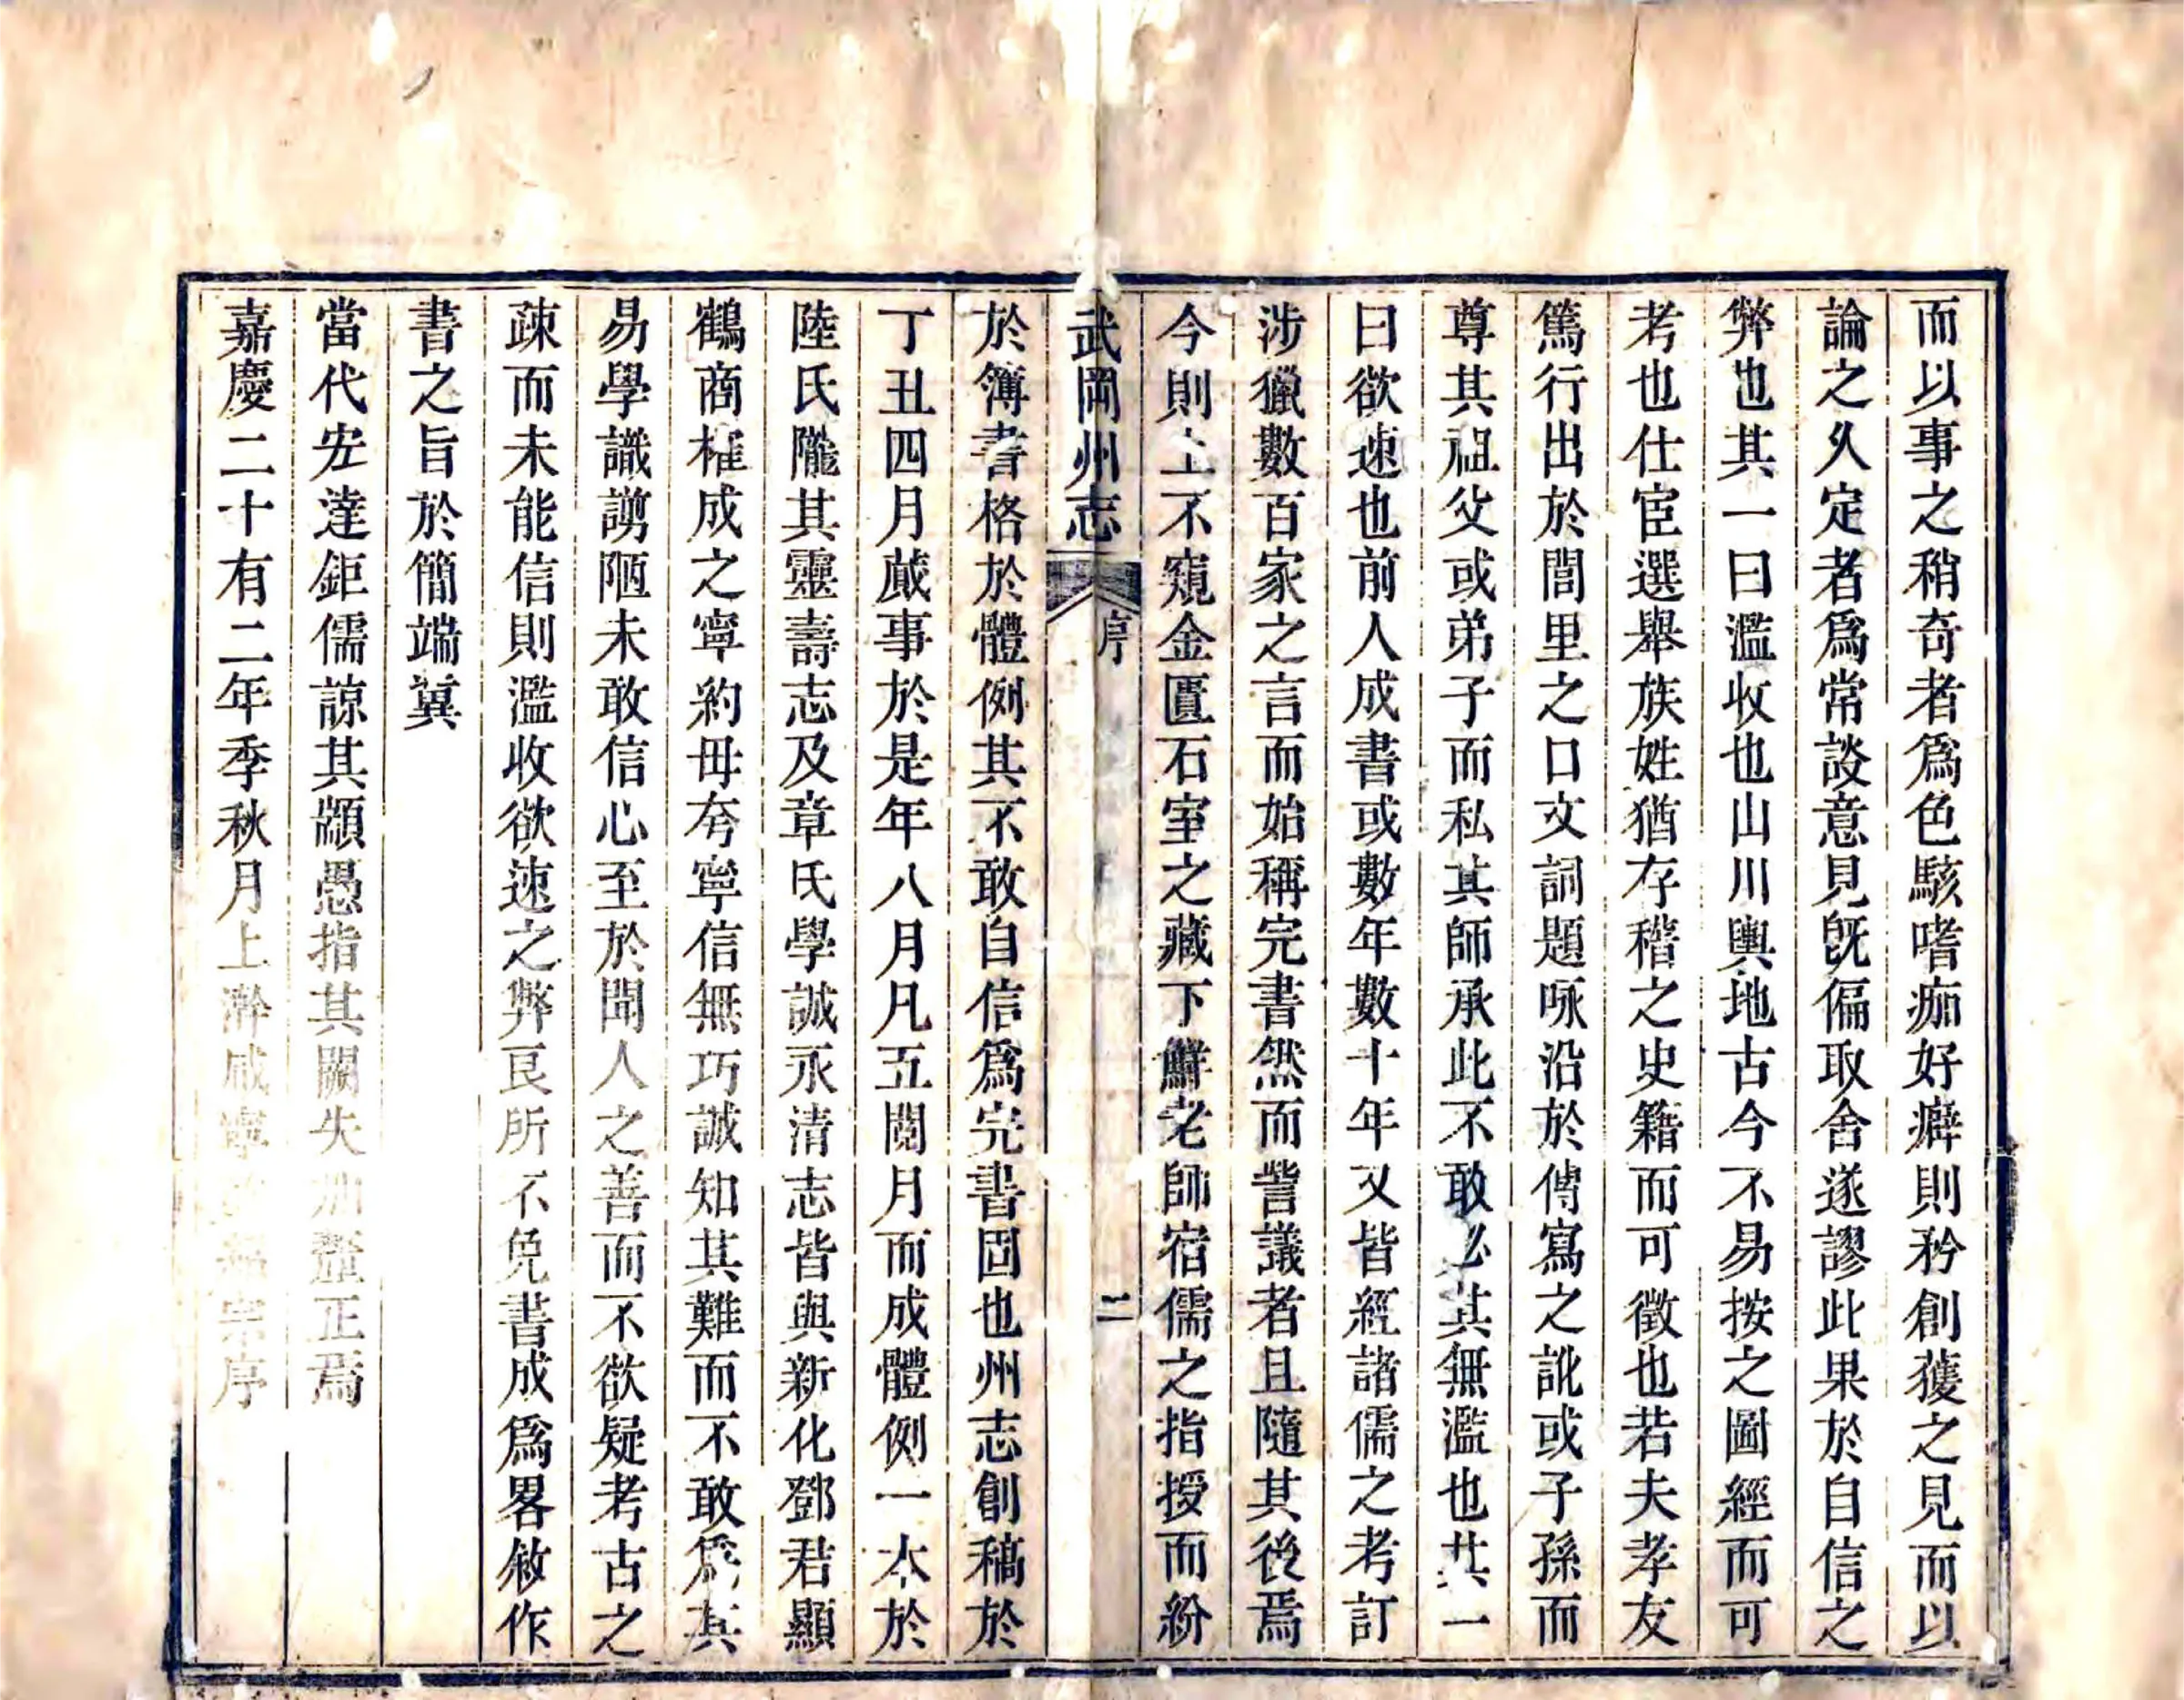 而以事之稍奇者爲色駭嗜痂好癖則矜創獲之見而以
論之久定者爲常談意見旣偏取舍遂謬此果於自信之
弊也其一曰濫收也山川輿地古今不易按之圖經而可
考也仕宦選舉族姓猶存稽之史籍而可徵也若夫孝友
篤行出於閭里之口文詞題咏沿於傳寫之訛或子孫而
尊其祖父或弟子而私其師承此不敢必其無濫也其一
曰欲速也前人成書或數年數十年又皆經諸儒之考訂
涉獵數百家之言而始稱完書然而訾議者且隨其後焉
今則上不窺金匱石室之藏下鮮老師宿儒之指授而紛
武岡州志 序 二
於簿書格於體例其不敢自信爲完書固也州志創稿於
丁丑四月蕆事於是年八月凡五閱月而成體例一本於
陸氏隴其靈壽志及章氏學誠永清志皆與新化鄧君顯
鶴商榷成之寧約毋夸寧信無巧誠知其難而不敢爲其
易學識謭陋未敢信心至於聞人之善而不欲疑考古之
疎而未能信則濫收欲速之弊良所不免書成爲畧敘作
書之旨於簡端冀
當代宏達鉅儒諒其顓愚指其闕失加釐正焉
嘉慶二十有二年季秋月上澣咸寧宗序